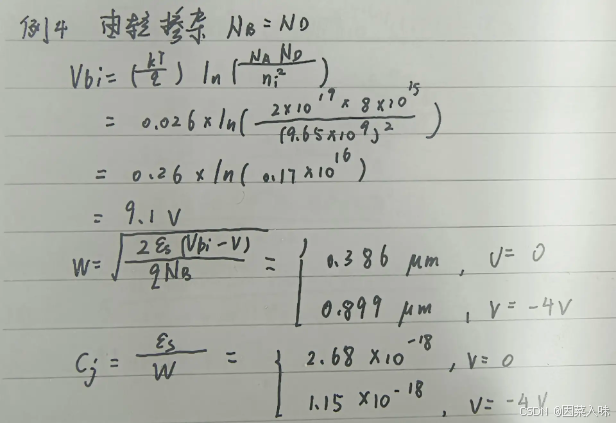 例4 由轻掺杂 N_B = N_D
Vbi = (kT/q) ln(N_A N_D/n_i^2)
= 0.026 × ln(2×10^19 × 8×10^15/(9.65×10^9)^2)
= 0.26 × ln(0.17×10^16)
= 9.1 V
W = √(2ε_s(Vbi-V)/qN_B) = { 0.386 μm, V = 0
0.899 μm, V = -4V
C_j = ε_s/W = { 2.68 × 10^-18, V = 0
1.15 × 10^-18, V = -4V
CSDN @困菜入味